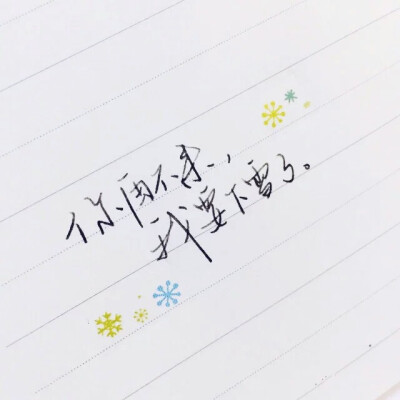 你再不来，
我要下雪了。